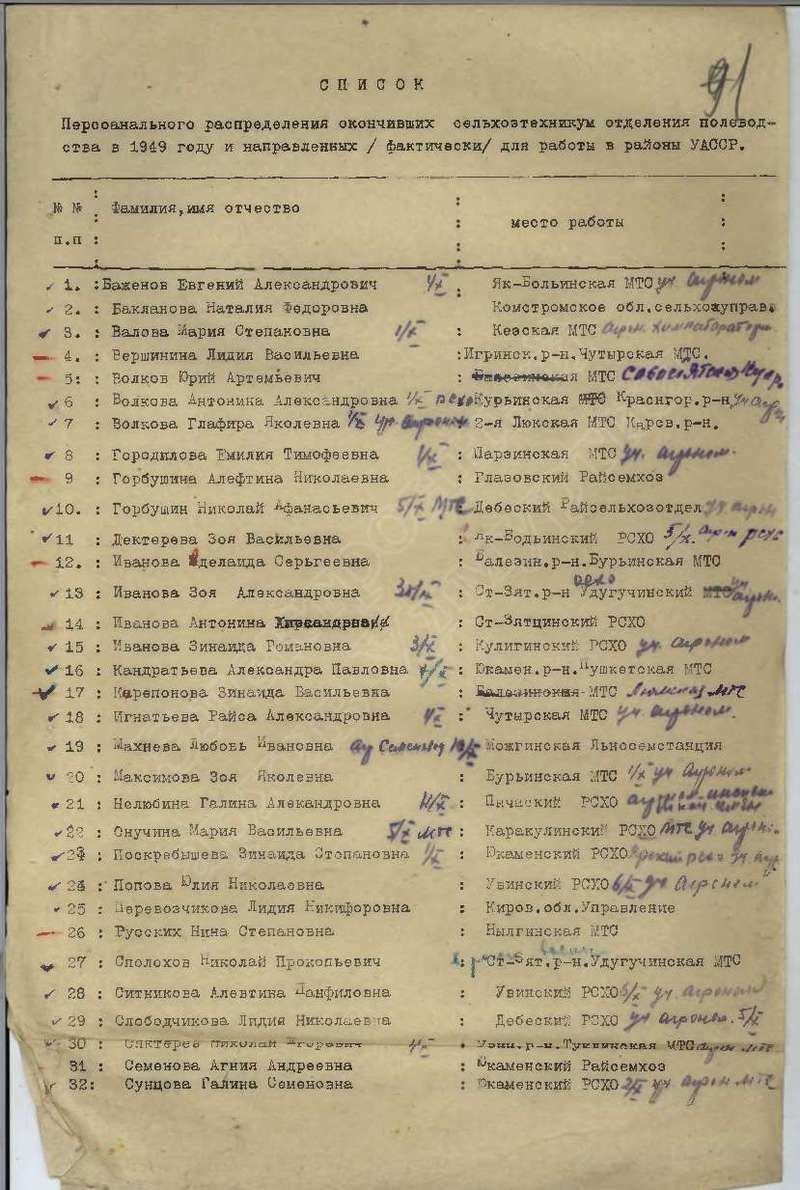 91
СПИСОК
Персоанального распределения окончивших сельхозтехникум отделения полевод-
ства в 1949 году и направленных / фактически/ для работы в районы УАССР.
№ № : Фамилия,имя отчество : место работы :
п.п
1. :Баженов Евгений Александрович 1/X : Як-Бодьинская МТС уч агроном
2. : Бакланова Наталия Федоровна Комстромское обл.сельхозуправ.
3. : Валова Мария Степановна 1/X : Кезская МТС
4. : Вершинина Лидия Васильевна :Игринск.р-н.Чутырская МТС.
5: : Волков Юрий Артемьевич : МТС
6 : Волкова Антонина Александровна 1/X Курьинская МТС Красногор.р-н.
7 : Волкова Глафира Яковлевна 1/X уч агроном 2-я Люкская МТС Каров.р-н.
8 : Городилова Емилия Тимофеевна 1/X : Парзинская МТС уч. агроном.
9 : Горбушина Алефтина Николаевна : Глазовский Райсемхоз
10. : Горбушин Николай Афанасьевич 5/X МТС Дебеский Райсельхозотдел уч агрон
11 : Дектерева Зоя Васильевна : Як-Бодьинский РСХО 5/X. агрон РСХО
12. : Иванова Аделаида Серьгеевна : Балезин.р-н.Бурьинская МТС
13 : Иванова Зоя Александровна : Ст-Зят.р-н Удугучинский МТС
14 : Иванова Антонина : Ст-Зятцинский РСХО
15 : Иванова Зинаида Романовна 3/X : Кулигинский РСХО уч. агроном
16 : Кандратьева Александра Павловна : Юкамен.р-н.Пушкетская МТС
17 : Карепонова Зинаида Васильевна : Балезинская-МТС
18 : Игнатьева Раиса Александровна 1/X : Чутырская МТС уч. агроном.
19 : Махнева Любовь Ивановна : Можгинская Льносемстанция
20 : Максимова Зоя Яковлевна : Бурьинская МТС 1/X уч агроном
21 : Нелюбина Галина Алекандровна : Пычаский РСХО
22 : Онучина Мария Васильевна 5/X МТС : Каракулинский РСХО МТС уч агрон.
23 : Поскребышева Зинаида Степановна 1/X : Юкаменский РСХО
24 : Попова Юлия Николаевна : Увинский РСХО 6/X уч агроном
25 : Перевозчикова Лидия Никифоровна : Киров.обл.Управление
26 : Русских Нина Степановна : Нылгинская МТС
27 : Сполохов Николай Прокопьевич : Ст-Зят.р-н.Удугучинская МТС
28 : Ситникова Алевтина Панфиловна : Увинский РСХО 6/X уч агроном
29 : Слободчикова Лидия Николаевна : Дебеский РСХО уч агроном. 5/X
30 : Николай Егорович : Увин.р-н. МТС
31 : Семенова Агния Андреевна : Юкаменский Райсемхоз
32: Сунцова Галина Семеновна : Юкаменский РСХО 2/X уч агрон МТС